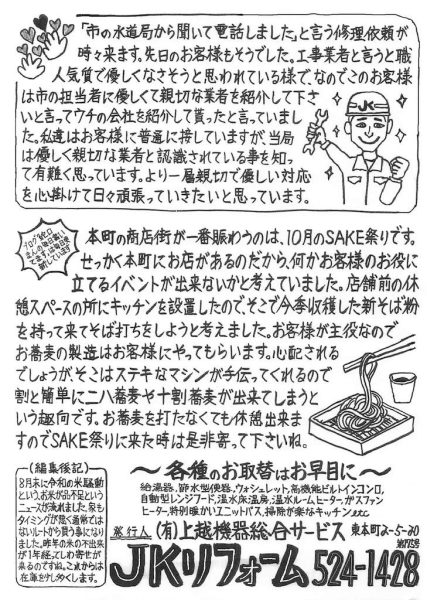 「市の水道局から聞いて電話しました。」と言う修理依頼が
時々来ます。先日のお客様もそうでした。工事業者と言うと職
人気質で優しくなさそうと思われている様で、なのでこのお客様
は市の担当者に優しくて親切な業者を紹介して下さ
いと言ってウチの会社を紹介して貰ったと言っていまし
た。私達はお客様に普通に接していますが、当局
は優しく親切な業者と認識されている事を知っ
て有難く思っています。より一層親切で優しい対応
を心掛けて日々頑張っていきたいと思っています。
JK
本町の商店街が一番賑わうのは、10月のSAKE祭りです。
せっかく本町にお店があるのだから何かお客様のお役に
立てるイベントが出来ないかと考えていました。店舗前の休
憩スペースの所にキッチンを設置したので、そこで今季収穫した新そば粉
を持って来てそば打ちをしようと考えました。お客様が主役なので
お蕎麦の製造はお客様にやってもらいます。心配される
でしょうが、そこはステキなマシンが手伝ってくれるので
割と簡単に二八蕎麦や十割蕎麦が出来てしまうと
いう趣向です。お蕎麦を打たなくても休憩出来ま
すのでSAKE祭りに来た時は是非寄って下さいね。
(編集後記)
8月末に令和の米騒動
という、お米が品不足という
ニュースが流れました。家も
タイミングが悪く通常では
ないルートから買う事になり
ました。昨年の米の不出来
が1年経てしわ寄せが来
るのですね。これからは
在庫を少し多くします。
〜各種のお取替はお早目に〜
給湯器、節水型便器、ウォシュレット、高機能ビルトインコンロ、
自動型レンジフード、温水床温房、温水ルームヒーター、ガスファン
ヒーター、特別暖かいユニットバス、掃除が楽なキッチンetc
発行人 (有)上越機器総合サービス 東本町2-5-20
JKリフォーム 524-1428